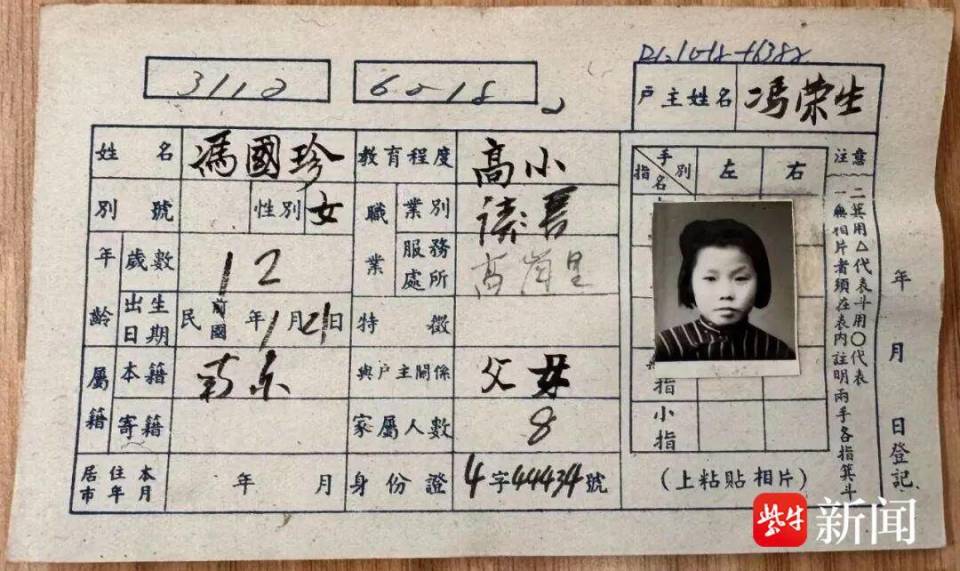 3112
60-18
户主姓名 馮荣生
姓名 馮國珍 教育程度 高小
別號 性別 女 職業 業別 读書
年齡 歲數 12 服務處所 高崗里
出生日期 民前國 年1月21日 特徵
屬籍 本籍 南京 與戶主關係 父女
寄籍 家屬人數 8
居住本市年月 年 月 身份證 4字44434號
指名 手別 左 右
指
小指
(上粘貼相片)
注意
一無相片者須在表內註明兩手各指箕斗
二箕用△代表斗用○代表
年 月 日登記
紫牛新闻